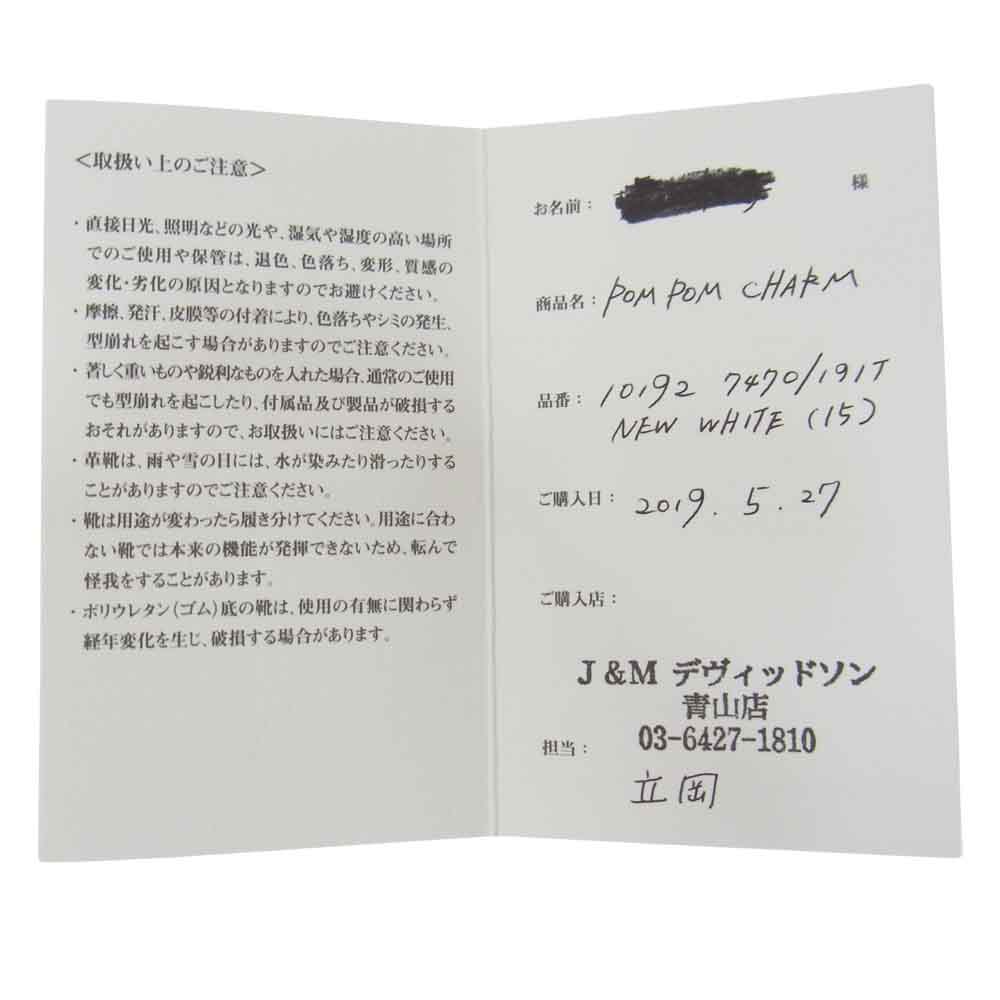 <取扱い上のご注意>
・直接日光、照明などの光や、湿気や湿度の高い場所
でのご使用や保管は、退色、色落ち、変形、質感の
変化・劣化の原因となりますのでお避けください。
・摩擦、発汗、皮膜等の付着により、色落ちやシミの発生、
型崩れを起こす場合がありますのでご注意ください。
・著しく重いものや鋭利なものを入れた場合、通常のご使用
でも型崩れを起こしたり、付属品及び製品が破損する
おそれがありますので、お取扱いにはご注意ください。
・革靴は、雨や雪の日には、水が染みたり滑ったりする
ことがありますのでご注意ください。
・靴は用途が変わったら履き分けてください。用途に合わ
ない靴では本来の機能が発揮できないため、転んで
怪我をすることがあります。
・ポリウレタン(ゴム)底の靴は、使用の有無に関わらず
経年変化を生じ、破損する場合があります。
お名前： 様
商品名：POM POM CHARM
品番：10192 7470/191T
NEW WHITE (15)
ご購入日：2019.5.27
ご購入店：
J&M デヴィッドソン
青山店
03-6427-1810
担当：
立岡